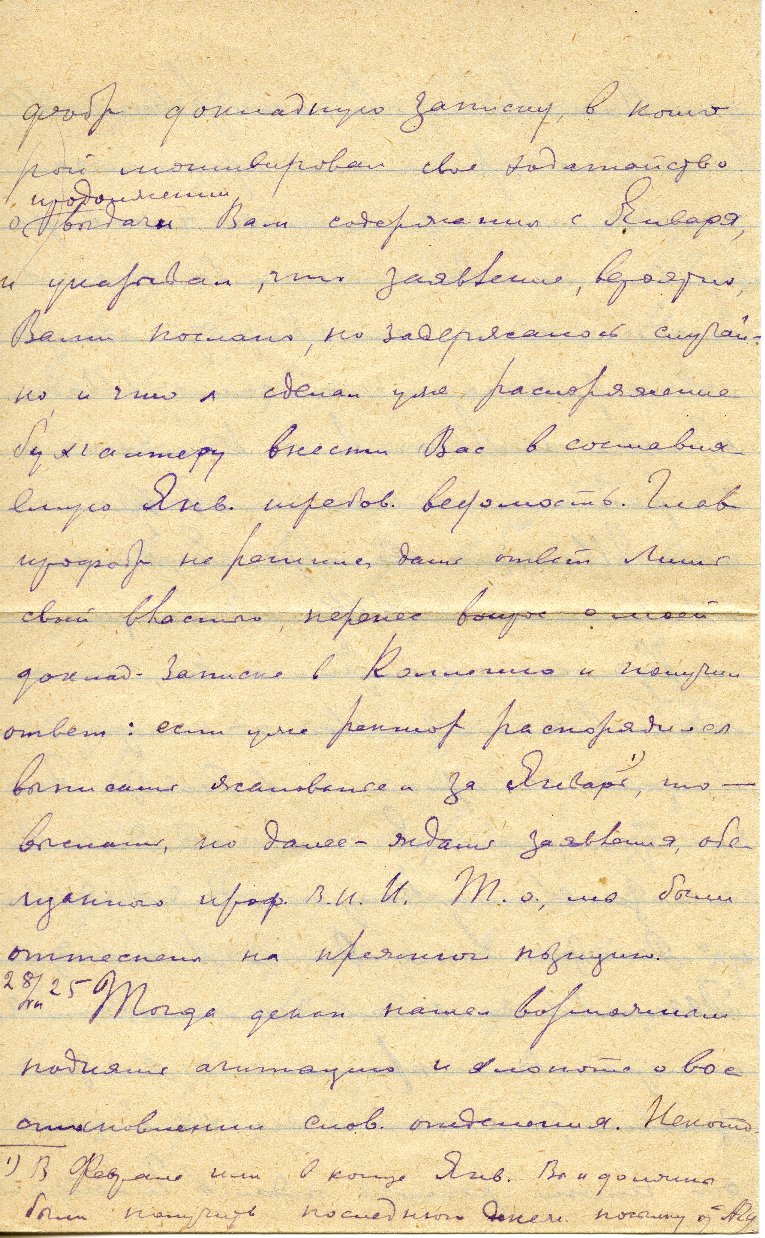 профобр докладную записку, в кото-
рой мотивировал свое ходатайство
продолжении
о выдачи Вам содержания с Января,
и указывал, что заявление, вероятно,
Вами послано, но задержалось случай-
но, и что я сделал уже распоряжение
бухгалтеру внести Вас в составля-
емую Янв. требов. ведомость. Глав
профобр не решились дать ответ лишь
своей властью, перенес вопрос о моей
доклад. записке в Коллегию и получил
ответ: если уже ректор распорядился
выписать жалованье и за Январь ¹), то —
выслать, но далее — ждать заявления, обе-
щанного проф. В.И.И. Т. о., мы были
оттеснены на прежнюю позицию.
28/ 25 Тогда декан нашел возможным
поднять агитацию и хлопоты о вос-
становлении слов. отделения. Некото-
¹) В Феврале или в конце Янв. Вы и должны
были получить последнюю посылку от